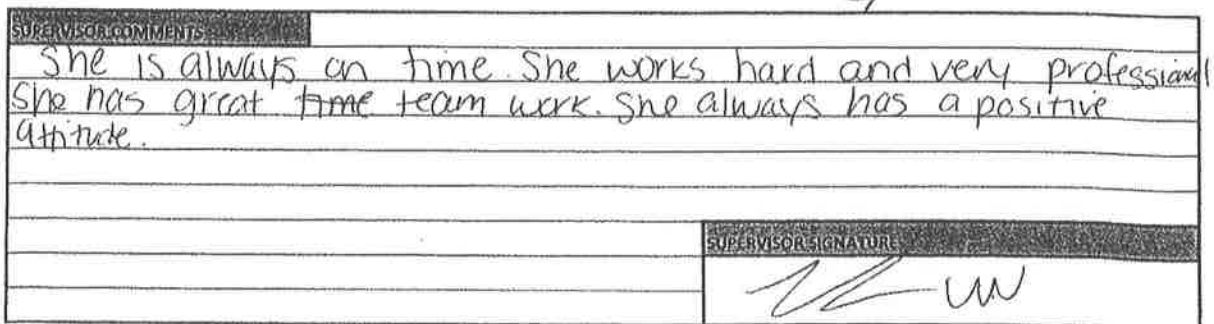 SUPERVISOR COMMENTS
She is always on time. She works hard and very professional
She has great time team work. She always has a positive
attitude.
SUPERVISOR SIGNATURE